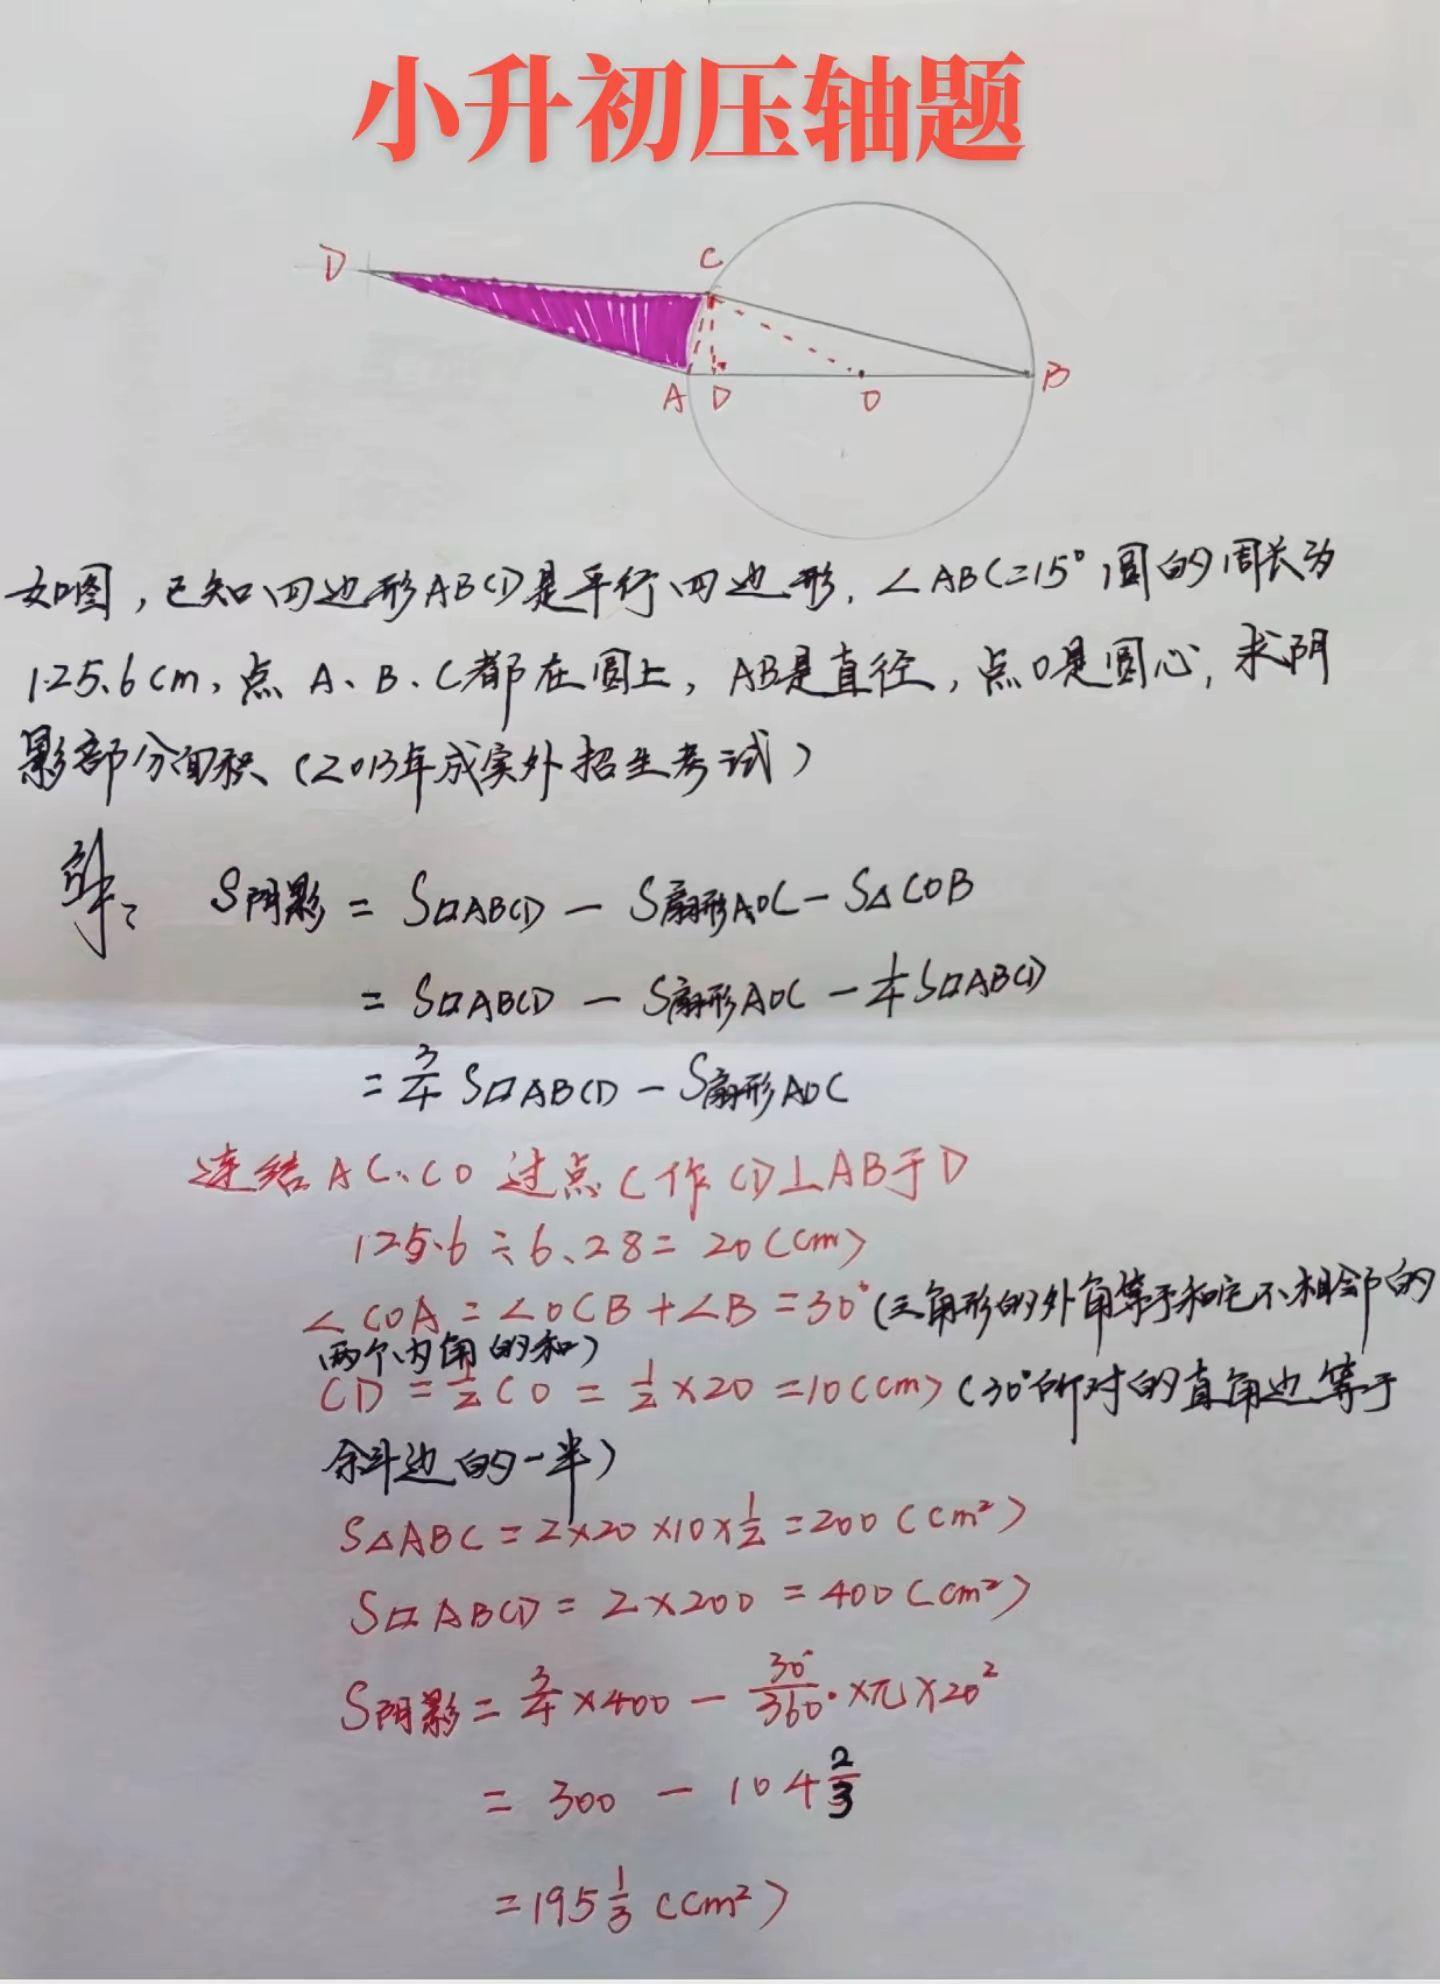 小升初压轴题
D
C
A D O B
如图,已知四边形ABCD是平行四边形,∠ABC=15°,圆的周长为
125.6cm,点A、B、C都在圆上,AB是直径,点O是圆心,求阴
影部分面积(2013年成实外招生考试)
解: S阴影 = S▱ABCD - S扇形AOC - S△COB
= S▱ABCD - S扇形AOC - 1/4 S▱ABCD
= 3/4 S▱ABCD - S扇形AOC
连结AC、CO 过点C作CD⊥AB于D
125.6÷6.28=20(cm)
∠COA=∠OCB+∠B=30°(三角形的外角等于和它不相邻的
两个内角的和)
CD=1/2CO=1/2×20=10(cm)(30°所对的直角边等于
斜边的一半)
S△ABC=2×20×10×1/2=200(cm²)
S▱ABCD=2×200=400(cm²)
S阴影=3/4×400-30°/360°×π×20²
= 300 - 104 2/3
=195 1/3 (cm²)